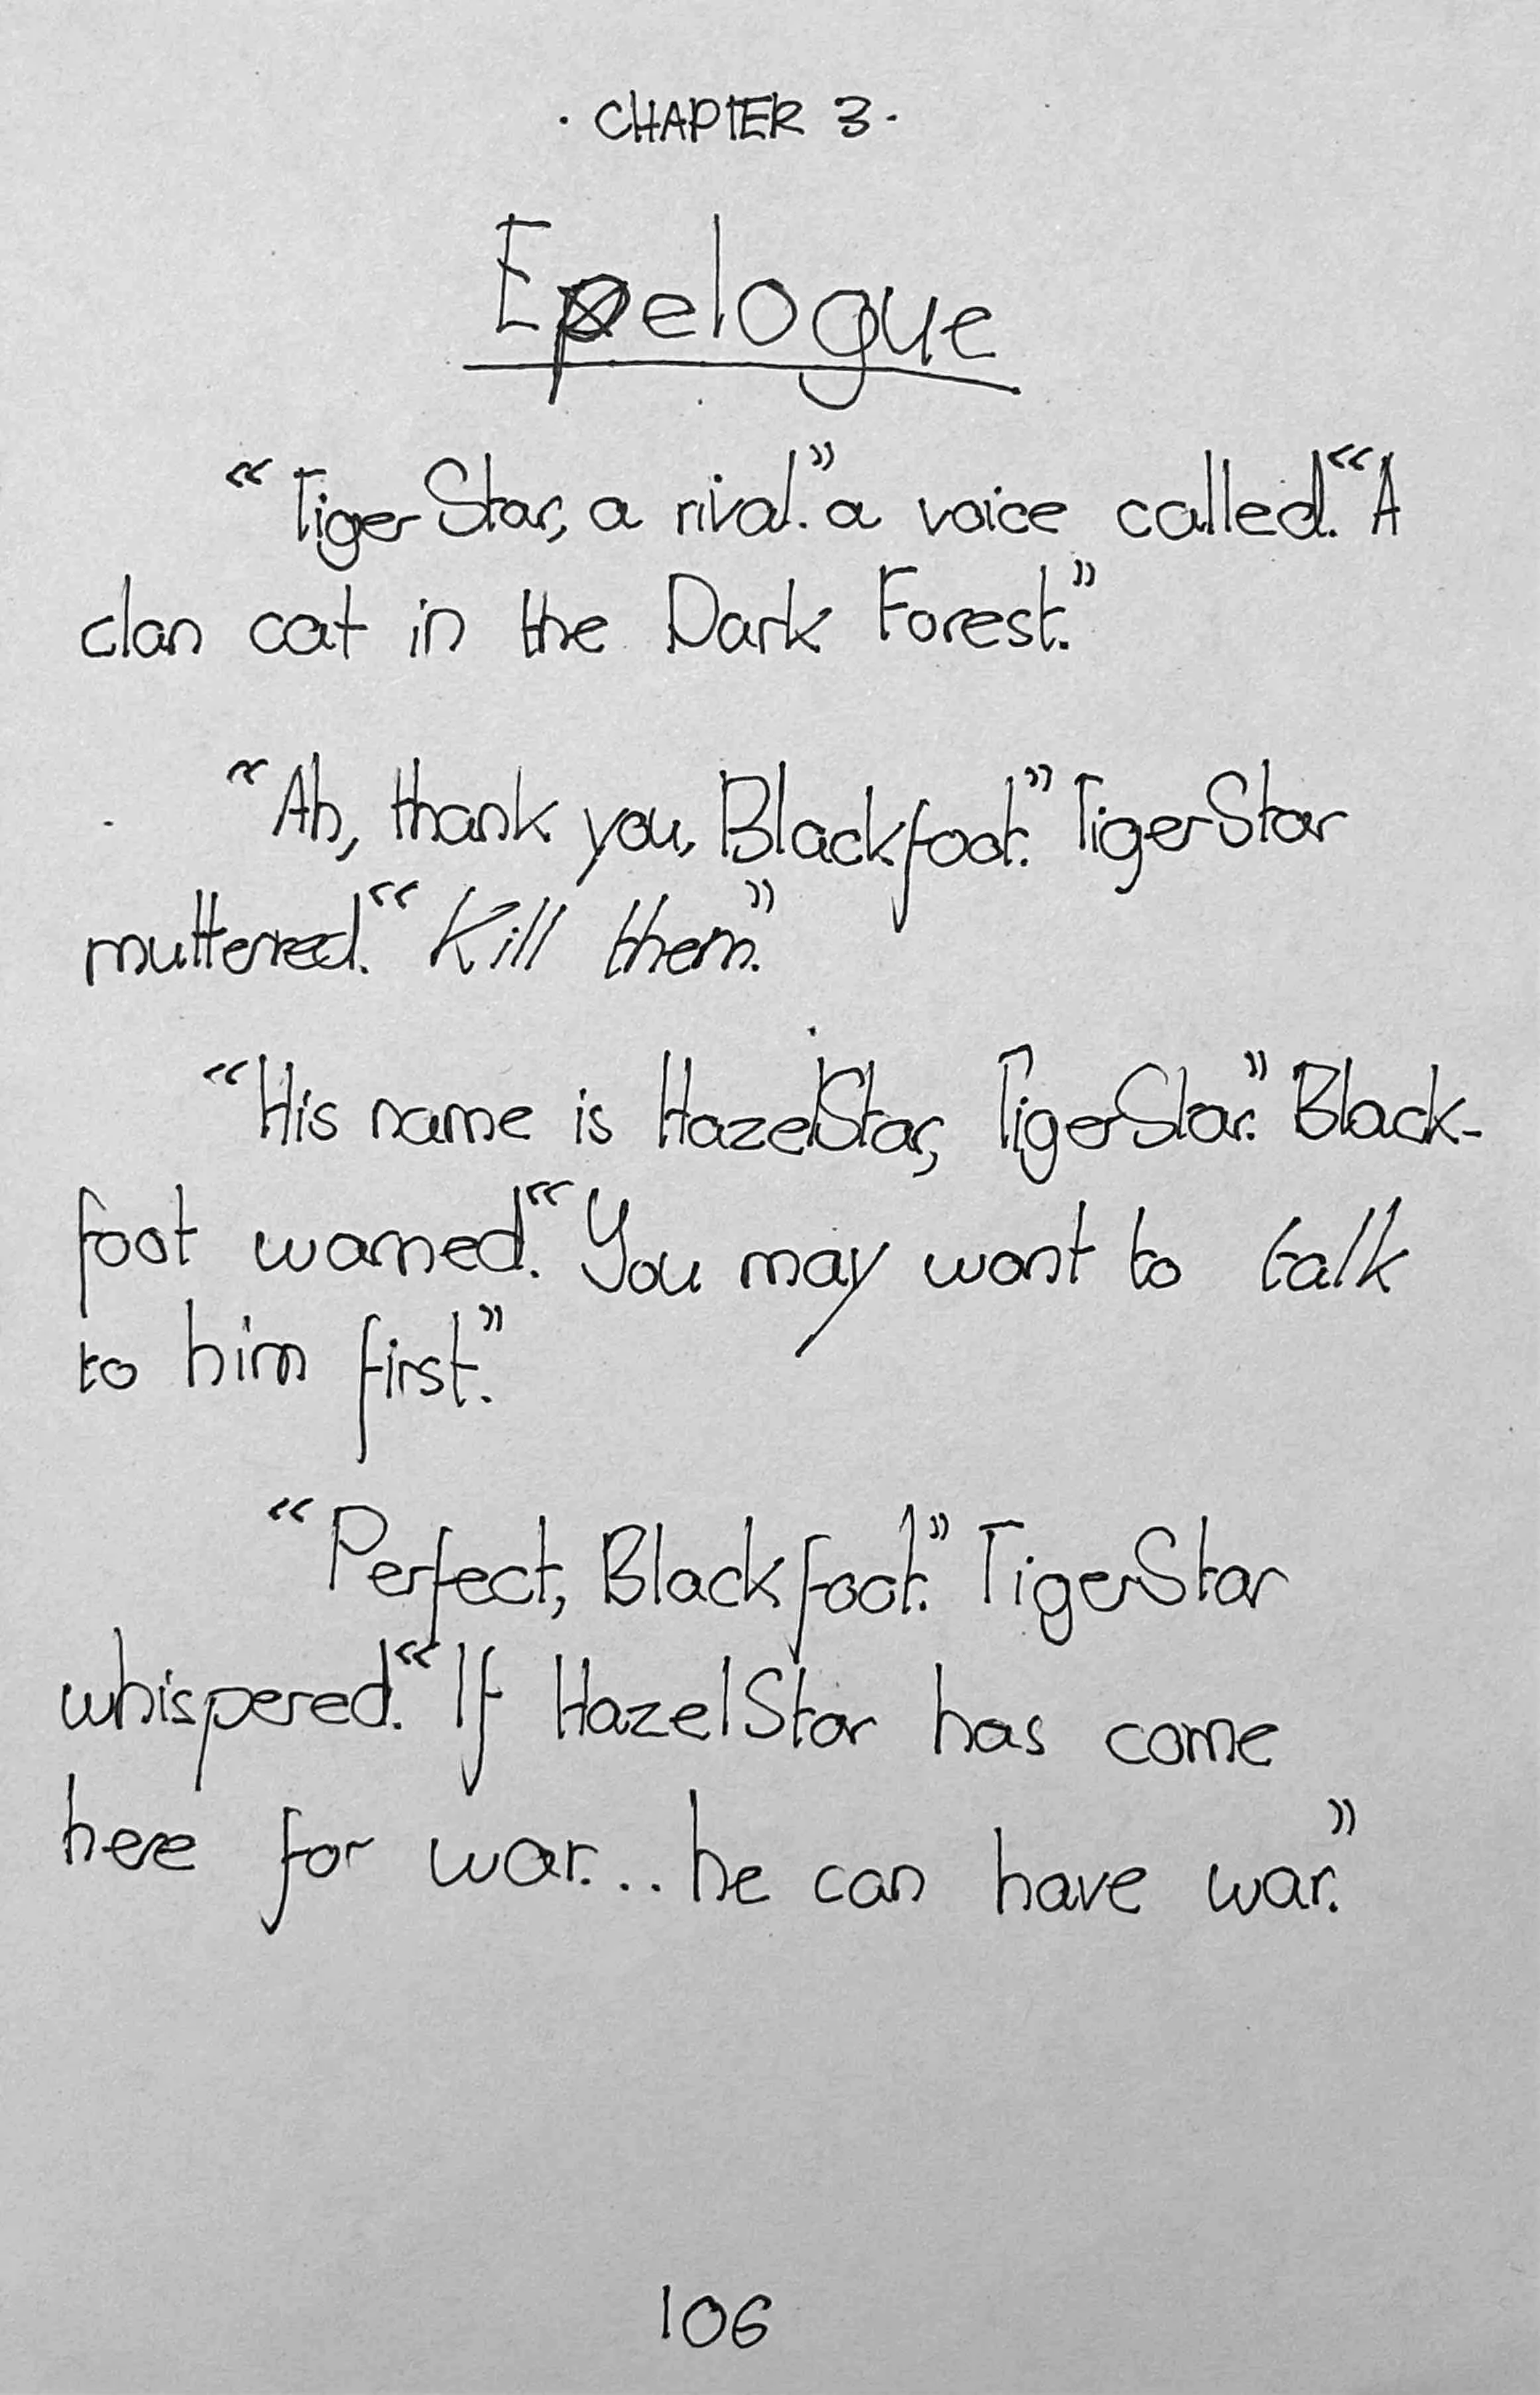 · CHAPTER 3 ·
Epelogue
“TigerStar, a rival.” a voice called. “A
clan cat in the Dark Forest.”
“Ah, thank you, Blackfoot.” TigerStar
muttered. “Kill them.”
“His name is HazelStar, TigerStar.” Black-
foot warned. “You may want to talk
to him first.”
“Perfect, Blackfoot.” TigerStar
whispered. “If HazelStar has come
here for war... he can have war.”
106